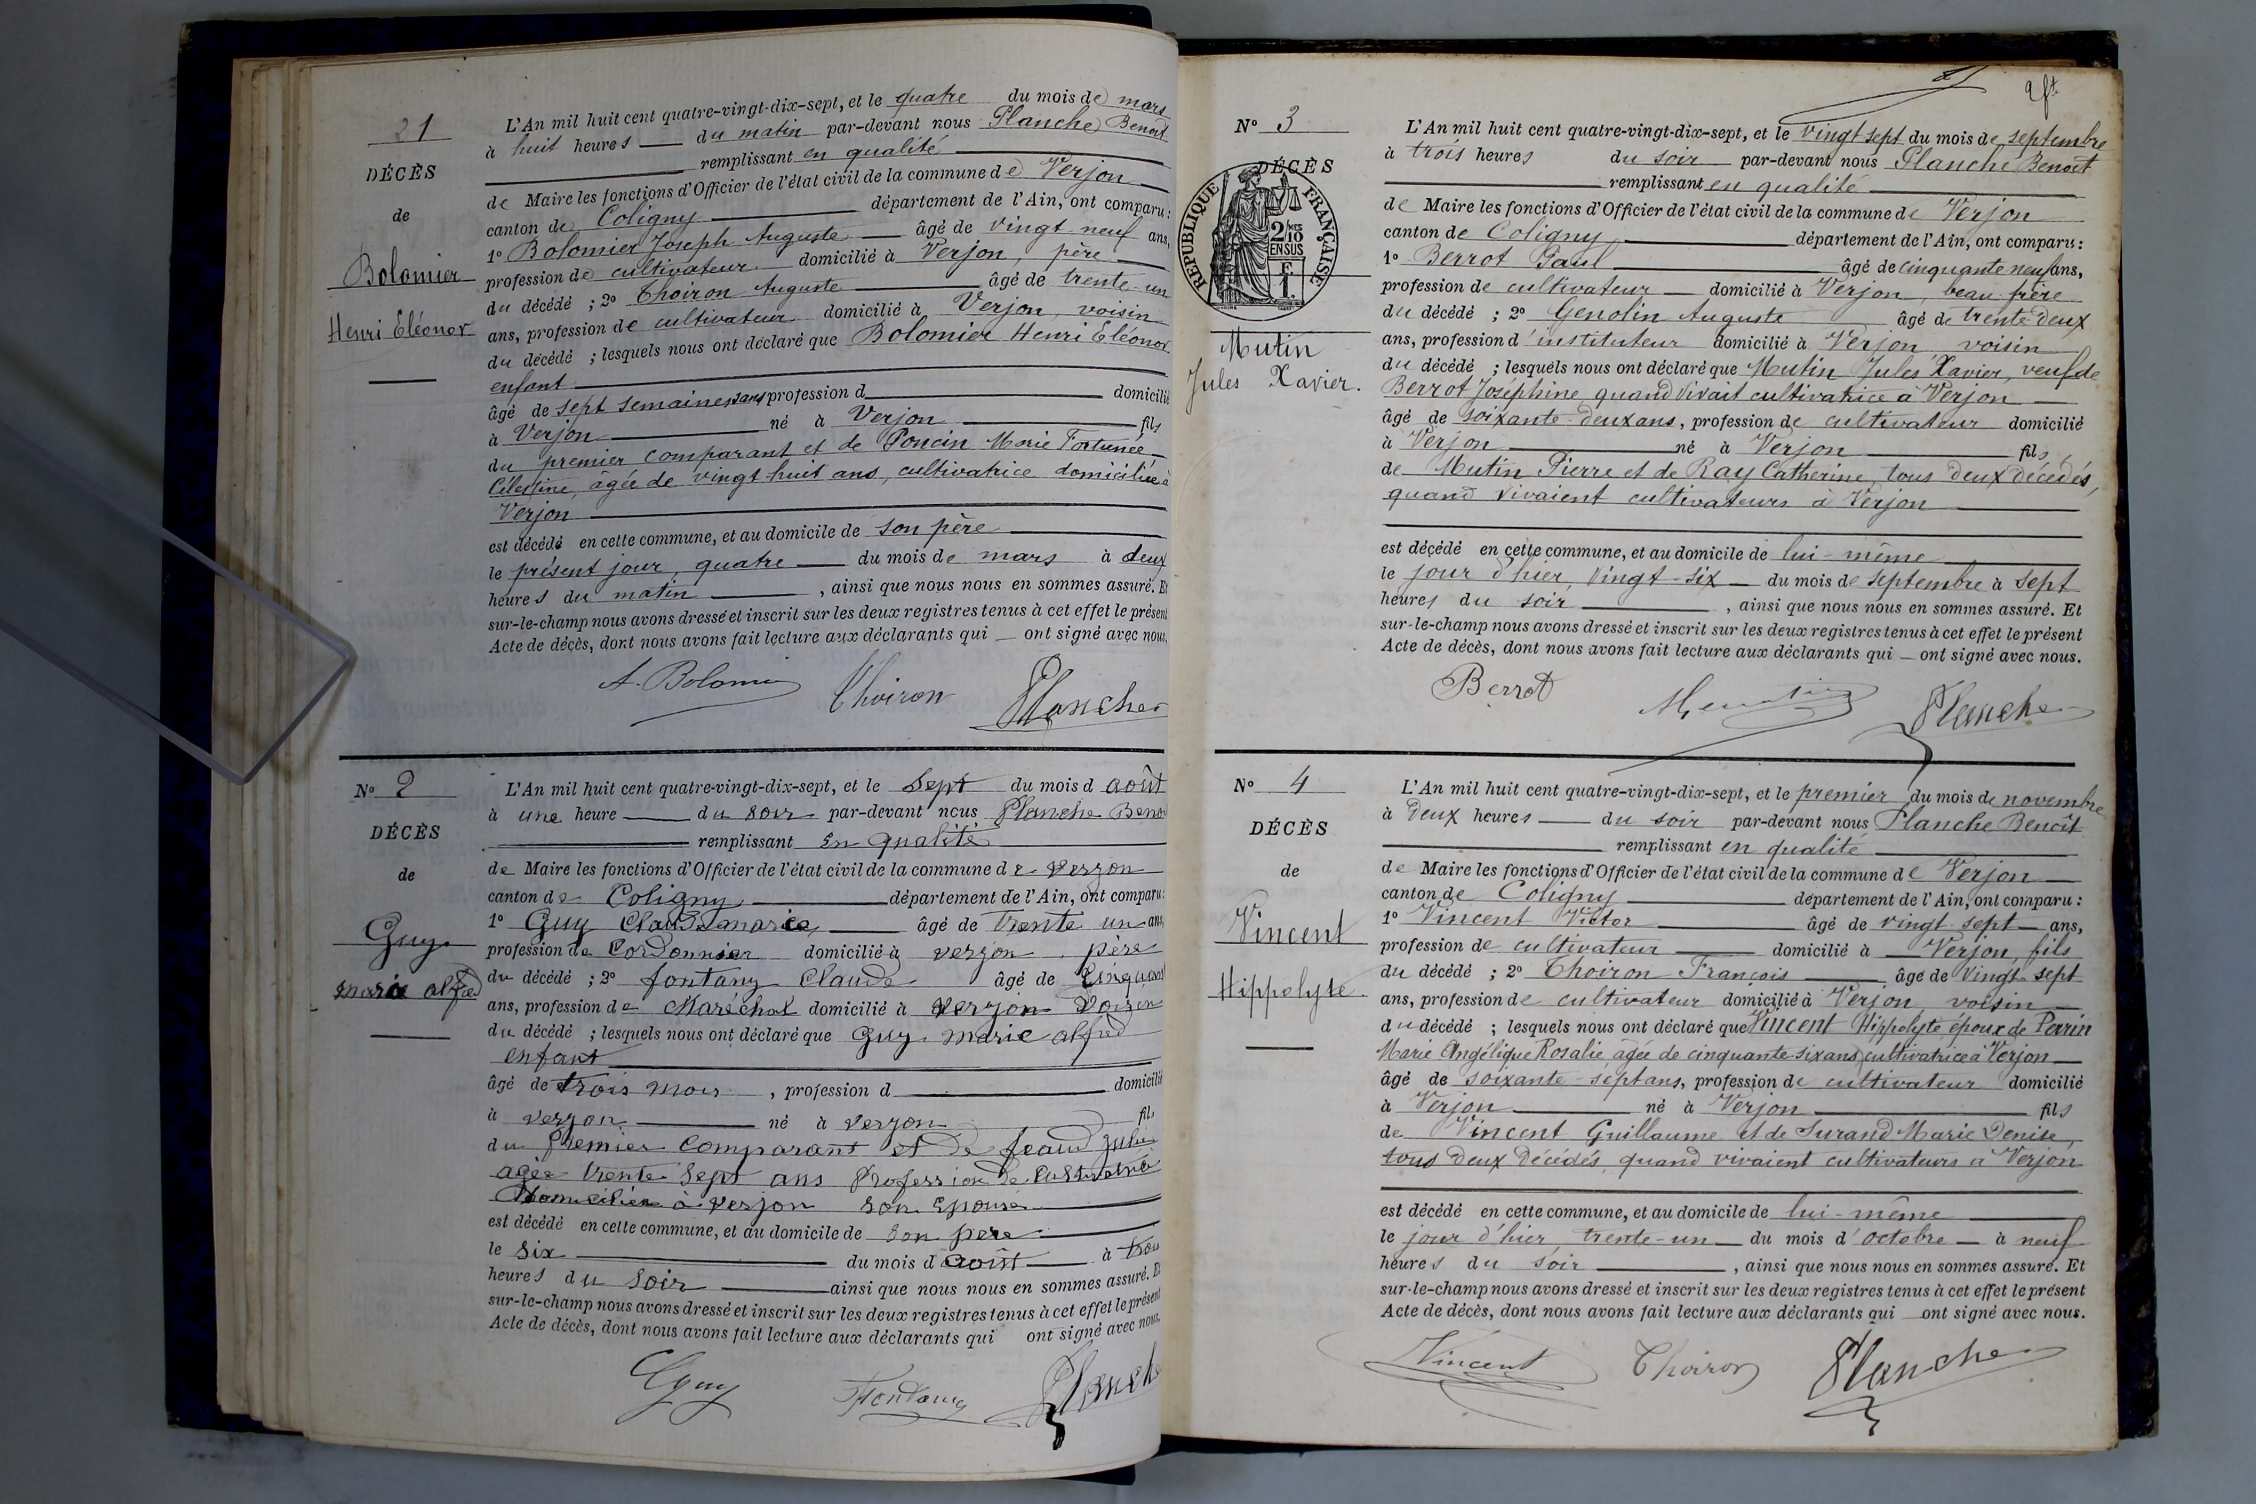 21
DÉCÈS
de
Bolomier
Henri Eléonor
L'An mil huit cent quatre-vingt-dix-sept, et le quatre du mois de mars
à huit heures du matin par-devant nous Planche Benoît
remplissant en qualité
de Maire les fonctions d'Officier de l'état civil de la commune de Verjon
canton de Coligny département de l'Ain, ont comparu:
1º Bolomier Joseph Auguste âgé de vingt-neuf ans,
profession de cultivateur domicilié à Verjon, père
du décédé ; 2º Thoiron Auguste âgé de trente-un
ans, profession de cultivateur domicilié à Verjon, voisin
du décédé ; lesquels nous ont déclaré que Bolomier Henri Eléonor
enfant
âgé de sept semaines, sans profession d domicilié
à Verjon né à Verjon fils
du premier comparant et de Poncin Marie Fortunée
Célestine, âgée de vingt huit ans, cultivatrice domiciliée à
Verjon
est décédé en cette commune, et au domicile de son père
le présent jour, quatre du mois de mars à deux
heures du matin , ainsi que nous nous en sommes assuré. Et
sur-le-champ nous avons dressé et inscrit sur les deux registres tenus à cet effet le présent
Acte de décès, dont nous avons fait lecture aux déclarants qui ont signé avec nous.
A. Bolomi
Thoiron
Planche
Nº 2
DÉCÈS
de
Guy
marie alfred
L'An mil huit cent quatre-vingt-dix-sept, et le Sept du mois d août
à une heure du soir par-devant nous Planche Benoi
remplissant En qualité
de Maire les fonctions d'Officier de l'état civil de la commune de verjon
canton de Coligny département de l'Ain, ont comparu:
1º Guy Claude marie âgé de Trente un ans,
profession de Cordonnier domicilié à verjon père
du décédé ; 2º fontany Claude âgé de Cinquant
ans, profession de Maréchal domicilié à verjon Voisin
du décédé ; lesquels nous ont déclaré que Guy marie alfred
enfant
âgé de trois mois , profession d domicilié
à verjon né à verjon fils
du Premier Comparant et de feaud Julie
agée trente Sept ans Profession de Cultivatrice
Domiciliée à verjon Son Epouse
est décédé en cette commune, et au domicile de Son pere
le Six du mois d août à trois
heures du Soir ainsi que nous nous en sommes assuré. Et
sur-le-champ nous avons dressé et inscrit sur les deux registres tenus à cet effet le présent
Acte de décès, dont nous avons fait lecture aux déclarants qui ont signé avec nous.
Guy
Fontany
Planche
Nº 3
DÉCÈS
REPUBLIQUE FRANÇAISE
2/10
EN SUS
F
1
Mutin
Jules Xavier.
L'An mil huit cent quatre-vingt-dix-sept, et le vingt sept du mois de septembre
à trois heures du soir par-devant nous Planche Benoît
remplissant en qualité
de Maire les fonctions d'Officier de l'état civil de la commune de Verjon
canton de Coligny département de l'Ain, ont comparu:
1º Berrot Paul âgé de cinquante neuf ans,
profession de cultivateur domicilié à Verjon, beau-frère
du décédé ; 2º Genolin Auguste âgé de trente-deux
ans, profession d'instituteur domicilié à Verjon voisin
du décédé ; lesquels nous ont déclaré que Mutin Jules Xavier, veuf de
Berrot Joséphine quand vivait cultivatrice à Verjon
âgé de soixante-deux ans, profession de cultivateur domicilié
à Verjon né à Verjon fils
de Mutin Pierre et de Ray Catherine, tous deux décédés,
quand vivaient cultivateurs à Verjon
est décédé en cette commune, et au domicile de lui-même
le jour d'hier, vingt-six du mois de septembre à sept
heures du soir , ainsi que nous nous en sommes assuré. Et
sur-le-champ nous avons dressé et inscrit sur les deux registres tenus à cet effet le présent
Acte de décès, dont nous avons fait lecture aux déclarants qui ont signé avec nous.
Berrot
Planche
Nº 4
DÉCÈS
de
Vincent
Hippolyte
L'An mil huit cent quatre-vingt-dix-sept, et le premier du mois de novembre
à deux heures du soir par-devant nous Planche Benoît
remplissant en qualité
de Maire les fonctions d'Officier de l'état civil de la commune de Verjon
canton de Coligny département de l'Ain, ont comparu:
1º Vincent Victor âgé de vingt-sept ans,
profession de cultivateur domicilié à Verjon, fils
du décédé ; 2º Thoiron François âgé de vingt-sept
ans, profession de cultivateur domicilié à Verjon, voisin
du décédé ; lesquels nous ont déclaré que Vincent Hippolyte, époux de Perrin
Marie Angélique Rosalie âgée de cinquante-six ans, cultivatrice à Verjon
âgé de soixante-sept ans, profession de cultivateur domicilié
à Verjon né à Verjon fils
de Vincent Guillaume et de Surand Marie Denise,
tous deux décédés, quand vivaient cultivateurs à Verjon
est décédé en cette commune, et au domicile de lui-même
le jour d'hier trente-un du mois d'octobre à neuf
heures du soir , ainsi que nous nous en sommes assuré. Et
sur-le-champ nous avons dressé et inscrit sur les deux registres tenus à cet effet le présent
Acte de décès, dont nous avons fait lecture aux déclarants qui ont signé avec nous.
Vincent
Thoiron
Planche